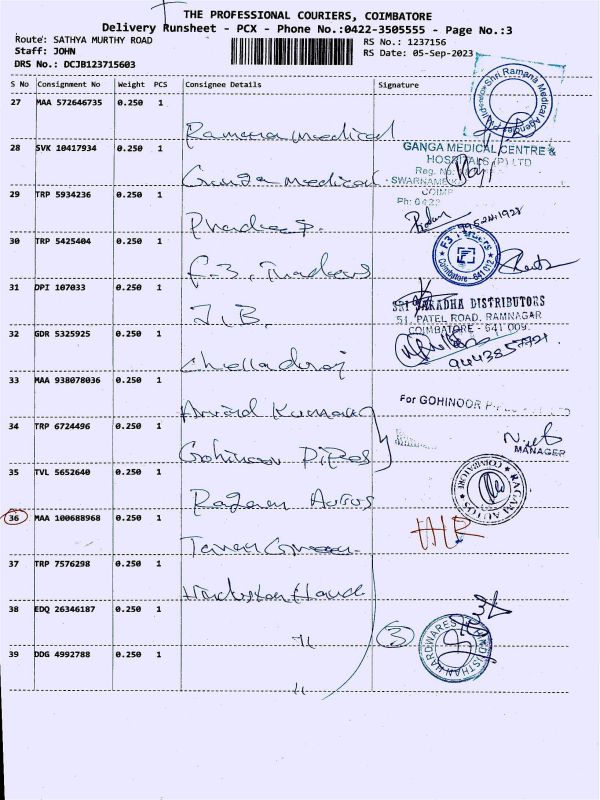 THE PROFESSIONAL COURIERS, COIMBATORE
Delivery Runsheet - PCX - Phone No.:0422-3505555 - Page No.:3
Route: SATHYA MURTHY ROAD
RS No.: 1237156
Staff: JOHN
RS Date: 05-Sep-2023
DRS No.: DCJB123715603
S No Consignment No Weight PCS Consignee Details Signature
27 MAA 572646735 0.250 1
Shri Ramana Medical Agencies
Ramana Medical
28 SVK 10417934 0.250 1
GANGA MEDICAL CENTRE &
HOSPITALS (P) LTD
Reg. No.
Ganga Medical
SWARNAMBIKA
COIMB
29 TRP 5934236 0.250 1
Ph: 0422
Pradeep.
30 TRP 5425404 0.250 1
F3
Coimbatore - 641 012
F-3. Traders
31 DPI 107033 0.250 1
SRI SARADHA DISTRIBUTORS
51, PATEL ROAD, RAMNAGAR
J.B.
COIMBATORE - 641 009.
32 GDR 5325925 0.250 1
9443857721
Chelladurai
33 MAA 938078036 0.250 1
Arvind Kumar
For GOHINOOR PIPES
34 TRP 6724496 0.250 1
Gohinoor Pipes
MANAGER
35 TVL 5652640 0.250 1
RAGAM AUTOS COIMBATORE
Ragam Autos
36 MAA 100688968 0.250 1
37 TRP 7576298 0.250 1
Hindustan Hard
38 EDQ 26346187 0.250 1
11
3
HINDUSTHAN HARDWARES
39 DDG 4992788 0.250 1
11